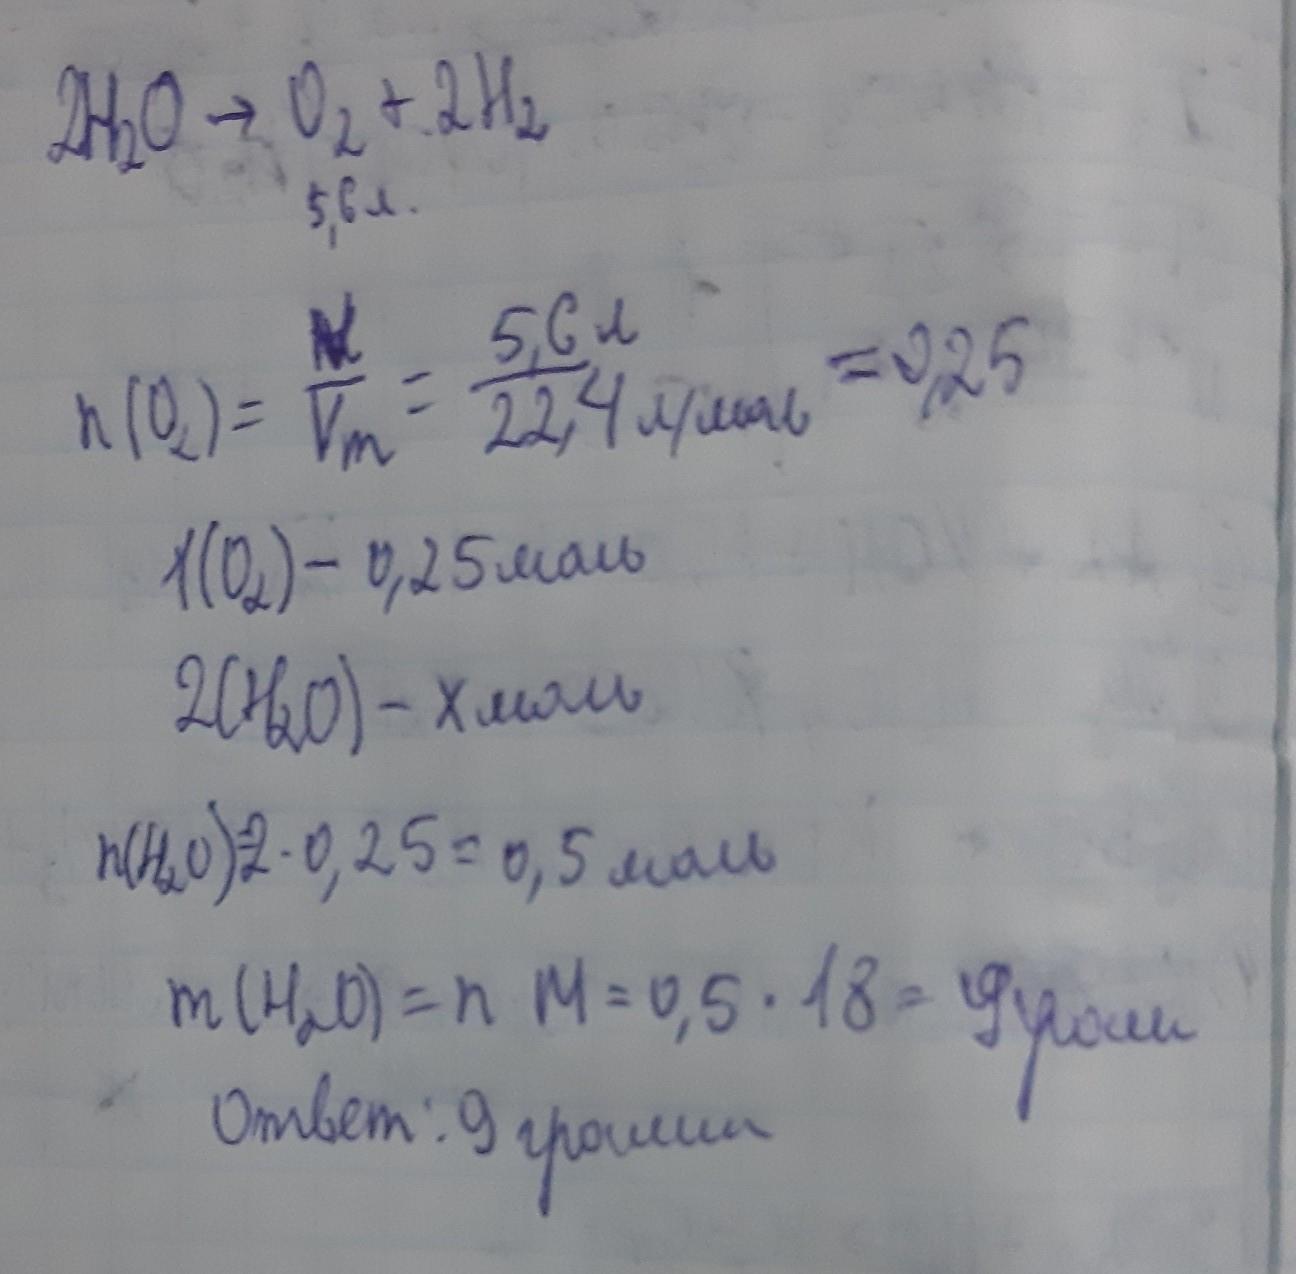 2H₂O → O₂ + 2H₂
5,6 л.
n(O₂) = V/Vm = 5,6 л/22,4 л/моль = 0,25
1(O₂) – 0,25 моль
2(H₂O) – x моль
n(H₂O)=2·0,25=0,5 моль
m(H₂O) = n M = 0,5 · 18 = 9 грам
Ответ: 9 грамм